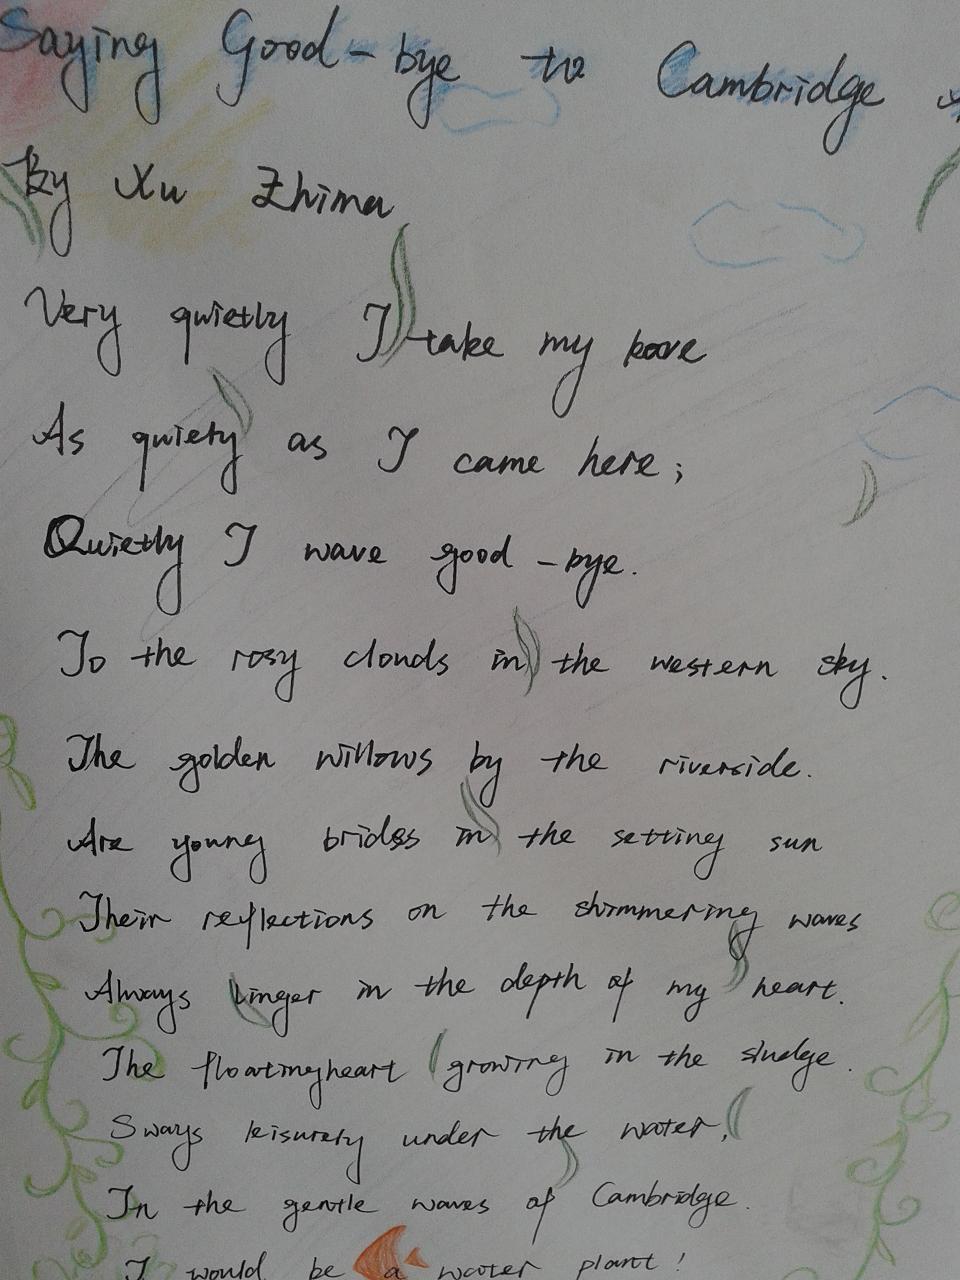 Saying Good-bye to Cambridge
By Xu Zhimo
Very quietly I take my leave
As quiety as I came here;
Quietly I wave good-bye.
To the rosy clouds in the western sky.
The golden willows by the riverside.
Are young brides in the setting sun
Their reflections on the shimmering waves
Always linger in the depth of my heart.
The floatingheart growing in the sludge.
Sways leisurely under the water,
In the gentle waves of Cambridge.
I would be a water plant!